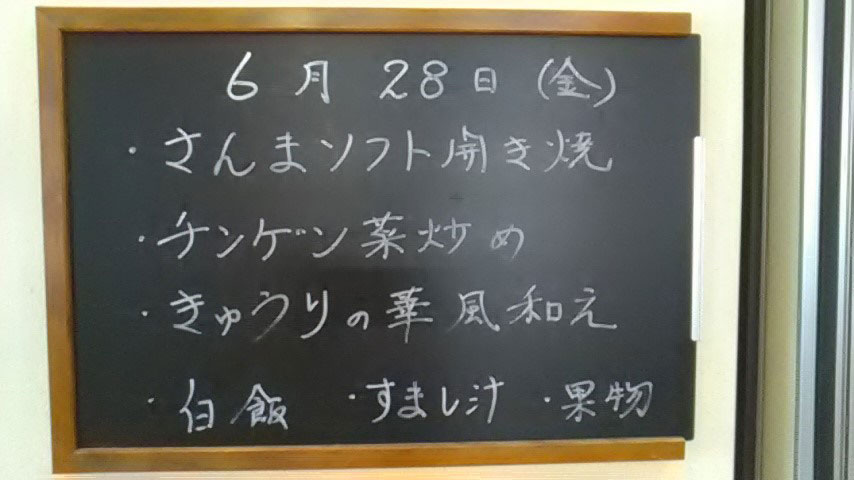 6月28日(金)
・さんまソフト開き焼
・チンゲン菜炒め
・きゅうりの華風和え
・白飯 ・すまし汁 ・果物